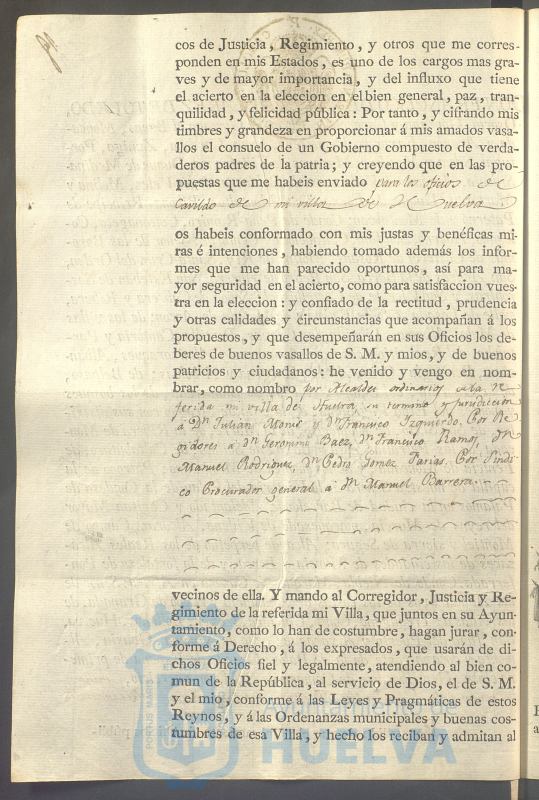 cos de Justicia, Regimiento, y otros que me corres-
ponden en mis Estados, es uno de los cargos mas gra-
ves y de mayor importancia, y del influxo que tiene
el acierto en la eleccion en el bien general, paz, tran-
quilidad, y felicidad pública: Por tanto, y cifrando mis
timbres y grandeza en proporcionar á mis amados vasa-
llos el consuelo de un Gobierno compuesto de verda-
deros padres de la patria; y creyendo que en las pro-
puestas que me habeis enviado para los oficios de
Cavildo de mi villa de Huelva
os habeis conformado con mis justas y benéficas mi-
ras é intenciones, habiendo tomado además los infor-
mes que me han parecido oportunos, así para ma-
yor seguridad en el acierto, como para satisfaccion vues-
tra en la eleccion: y confiado de la rectitud, prudencia
y otras calidades y circunstancias que acompañan á los
propuestos, y que desempeñarán en sus Oficios los de-
beres de buenos vasallos de S. M. y mios, y de buenos
patricios y ciudadanos: he venido y vengo en nom-
brar, como nombro por Alcaldes ordinarios de la re
ferida mi villa de Huelva, su termino y jurisdiccion
á Dn. Julian Monis y Dn. Francisco Izquierdo. Por Re
gidores á Dn. Geronimo Baez, Dn. Francisco Ramos, Dn.
Manuel Rodriguez, Dn. Pedro Gomez Farias. Por Sindi
co Procurador general á Dn. Manuel Barrera
vecinos de ella. Y mando al Corregidor, Justicia y Re-
gimiento de la referida mi Villa, que juntos en su Ayun-
tamiento, como lo han de costumbre, hagan jurar, con-
forme á Derecho, á los expresados, que usarán de di-
chos Oficios fiel y legalmente, atendiendo al bien co-
mun de la República, al servicio de Dios, el de S. M.
y el mio, conforme á las Leyes y Pragmáticas de estos
Reynos, y á las Ordenanzas municipales y buenas cos-
tumbres de esa Villa, y hecho los reciban y admitan al
PORTUS MARIS
HUELVA